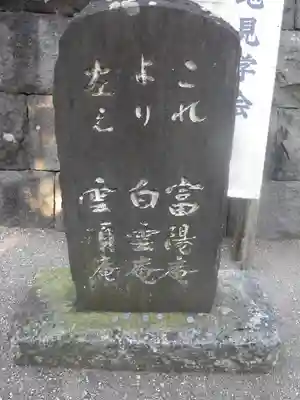 これ 富陽庵
より 白雲庵
左之 雲頂庵
見学会